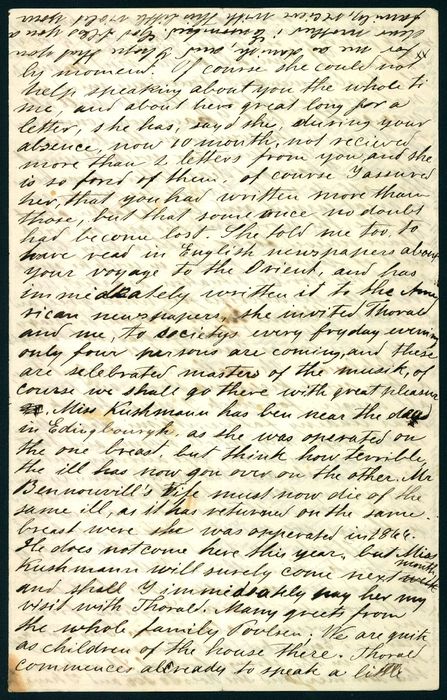 by moment. Of course she could not
help speaking about you the whole ti
me and about hers great long for a
letter, she has, says she, during your
absence, now 10 month, not recieved
more than 2 letters from you, and she
is so fond of them, of course I assured
her, that you had written more than
those, but that some once no doubt
had become lost. She told me too, to
have read in English newspapers about
your voyage to the Orient, and has
immideately written it to the Ame
rican newspapers, she invited Thorald
and me, to societys every fryday evening
only four persons are coming, and these
are selebrated masters of the musik, of
course we shall go there with great pleasure
Miss Kushmann has ben near the dead
in Edingbourgh, as she was operated on
the one breast, but think how terrible,
the ill has now gon over on the other. Mr
Bennouvill's vife must now die of the
same ill, as it has returned on the same
breast were she was opperated in 1866.
He does not come here this year, but Miss
Kushmann will surely come next month
week
and shall I immideately pay her my
visit with Thorald. Many greets from
the whole family Poulsen; We are quite
as children of the house there. Thorald
commences alcready to speak a little